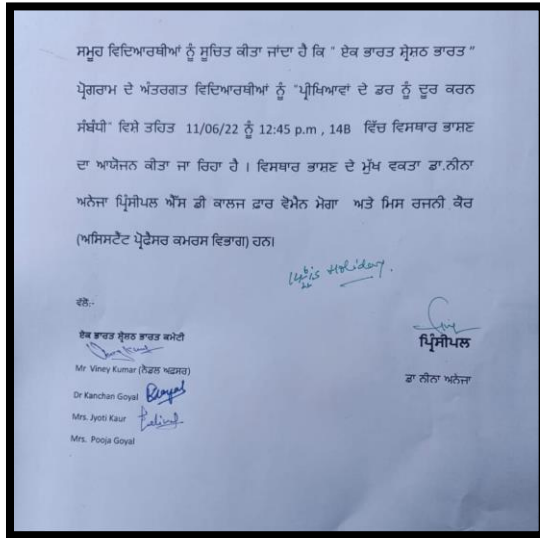 ਸਮੂਹ ਵਿਦਿਆਰਥੀਆਂ ਨੂੰ ਸੂਚਿਤ ਕੀਤਾ ਜਾਂਦਾ ਹੈ ਕਿ " ਏਕ ਭਾਰਤ ਸ਼੍ਰੇਸ਼ਠ ਭਾਰਤ "
ਪ੍ਰੋਗਰਾਮ ਦੇ ਅੰਤਰਗਤ ਵਿਦਿਆਰਥੀਆਂ ਨੂੰ "ਪ੍ਰੀਖਿਆਵਾਂ ਦੇ ਡਰ ਨੂੰ ਦੂਰ ਕਰਨ
ਸੰਬੰਧੀ" ਵਿਸ਼ੇ ਤਹਿਤ 11/06/22 ਨੂੰ 12:45 p.m , 14B ਵਿੱਚ ਵਿਸਥਾਰ ਭਾਸ਼ਣ
ਦਾ ਆਯੋਜਨ ਕੀਤਾ ਜਾ ਰਿਹਾ ਹੈ । ਵਿਸਥਾਰ ਭਾਸ਼ਣ ਦੇ ਮੁੱਖ ਵਕਤਾ ਡਾ.ਨੀਨਾ
ਅਨੇਜਾ ਪ੍ਰਿੰਸੀਪਲ ਐੱਸ ਡੀ ਕਾਲਜ ਫ਼ਾਰ ਵੋਮੈਨ ਮੋਗਾ ਅਤੇ ਮਿਸ ਰਜਨੀ ਕੌਰ
(ਅਸਿਸਟੈਂਟ ਪ੍ਰੋਫੈਸਰ ਕਮਰਸ ਵਿਭਾਗ) ਹਨ।
is Holiday.
ਵੱਲੋਂ:-
ਏਕ ਭਾਰਤ ਸ਼੍ਰੇਸ਼ਠ ਭਾਰਤ ਕਮੇਟੀ
Mr Viney Kumar (ਨੋਡਲ ਅਫ਼ਸਰ)
Dr Kanchan Goyal
Mrs. Jyoti Kaur
Mrs. Pooja Goyal
ਪ੍ਰਿੰਸੀਪਲ
ਡਾ ਨੀਨਾ ਅਨੇਜਾ